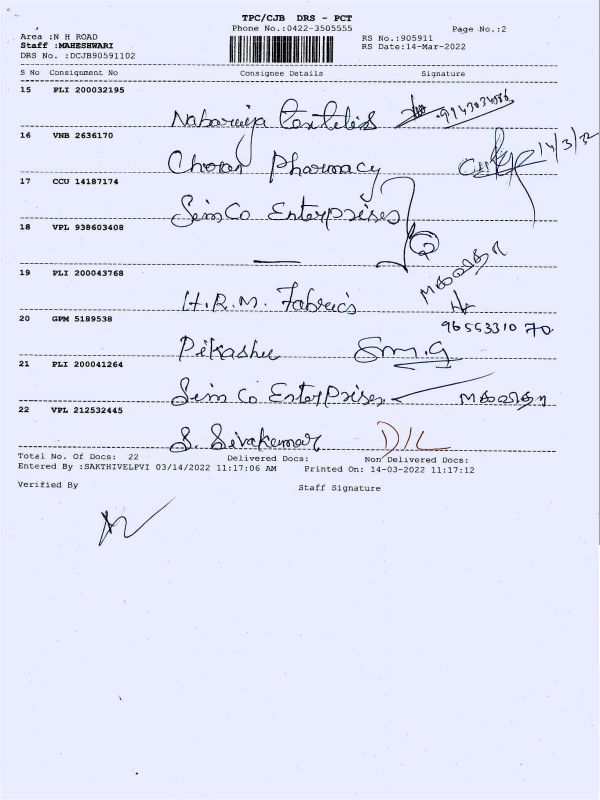 TPC/CJB DRS - PCT
Phone No.:0422-3505555 Page No.:2
Area :N H ROAD RS No.:905911
Staff :MAHESHWARI RS Date:14-Mar-2022
DRS No. :DCJB90591102
S No Consignment No Consignee Details Signature
15 PLI 200032195
16 VNB 2636170
Choran Pharmacy 14/3/22
17 CCU 14187174
SimCo Enterprises
18 VPL 938603408
19 PLI 200043768
H.R.M. Fabrics
20 GPM 5189538 9655331070
Pikashu S.M.G
21 PLI 200041264
Sim Co Enterprises
22 VPL 212532445
S. Sivakumar D/L
Total No. Of Docs: 22 Delivered Docs: Non Delivered Docs:
Entered By :SAKTHIVELPVI 03/14/2022 11:17:06 AM Printed On: 14-03-2022 11:17:12
Verified By Staff Signature